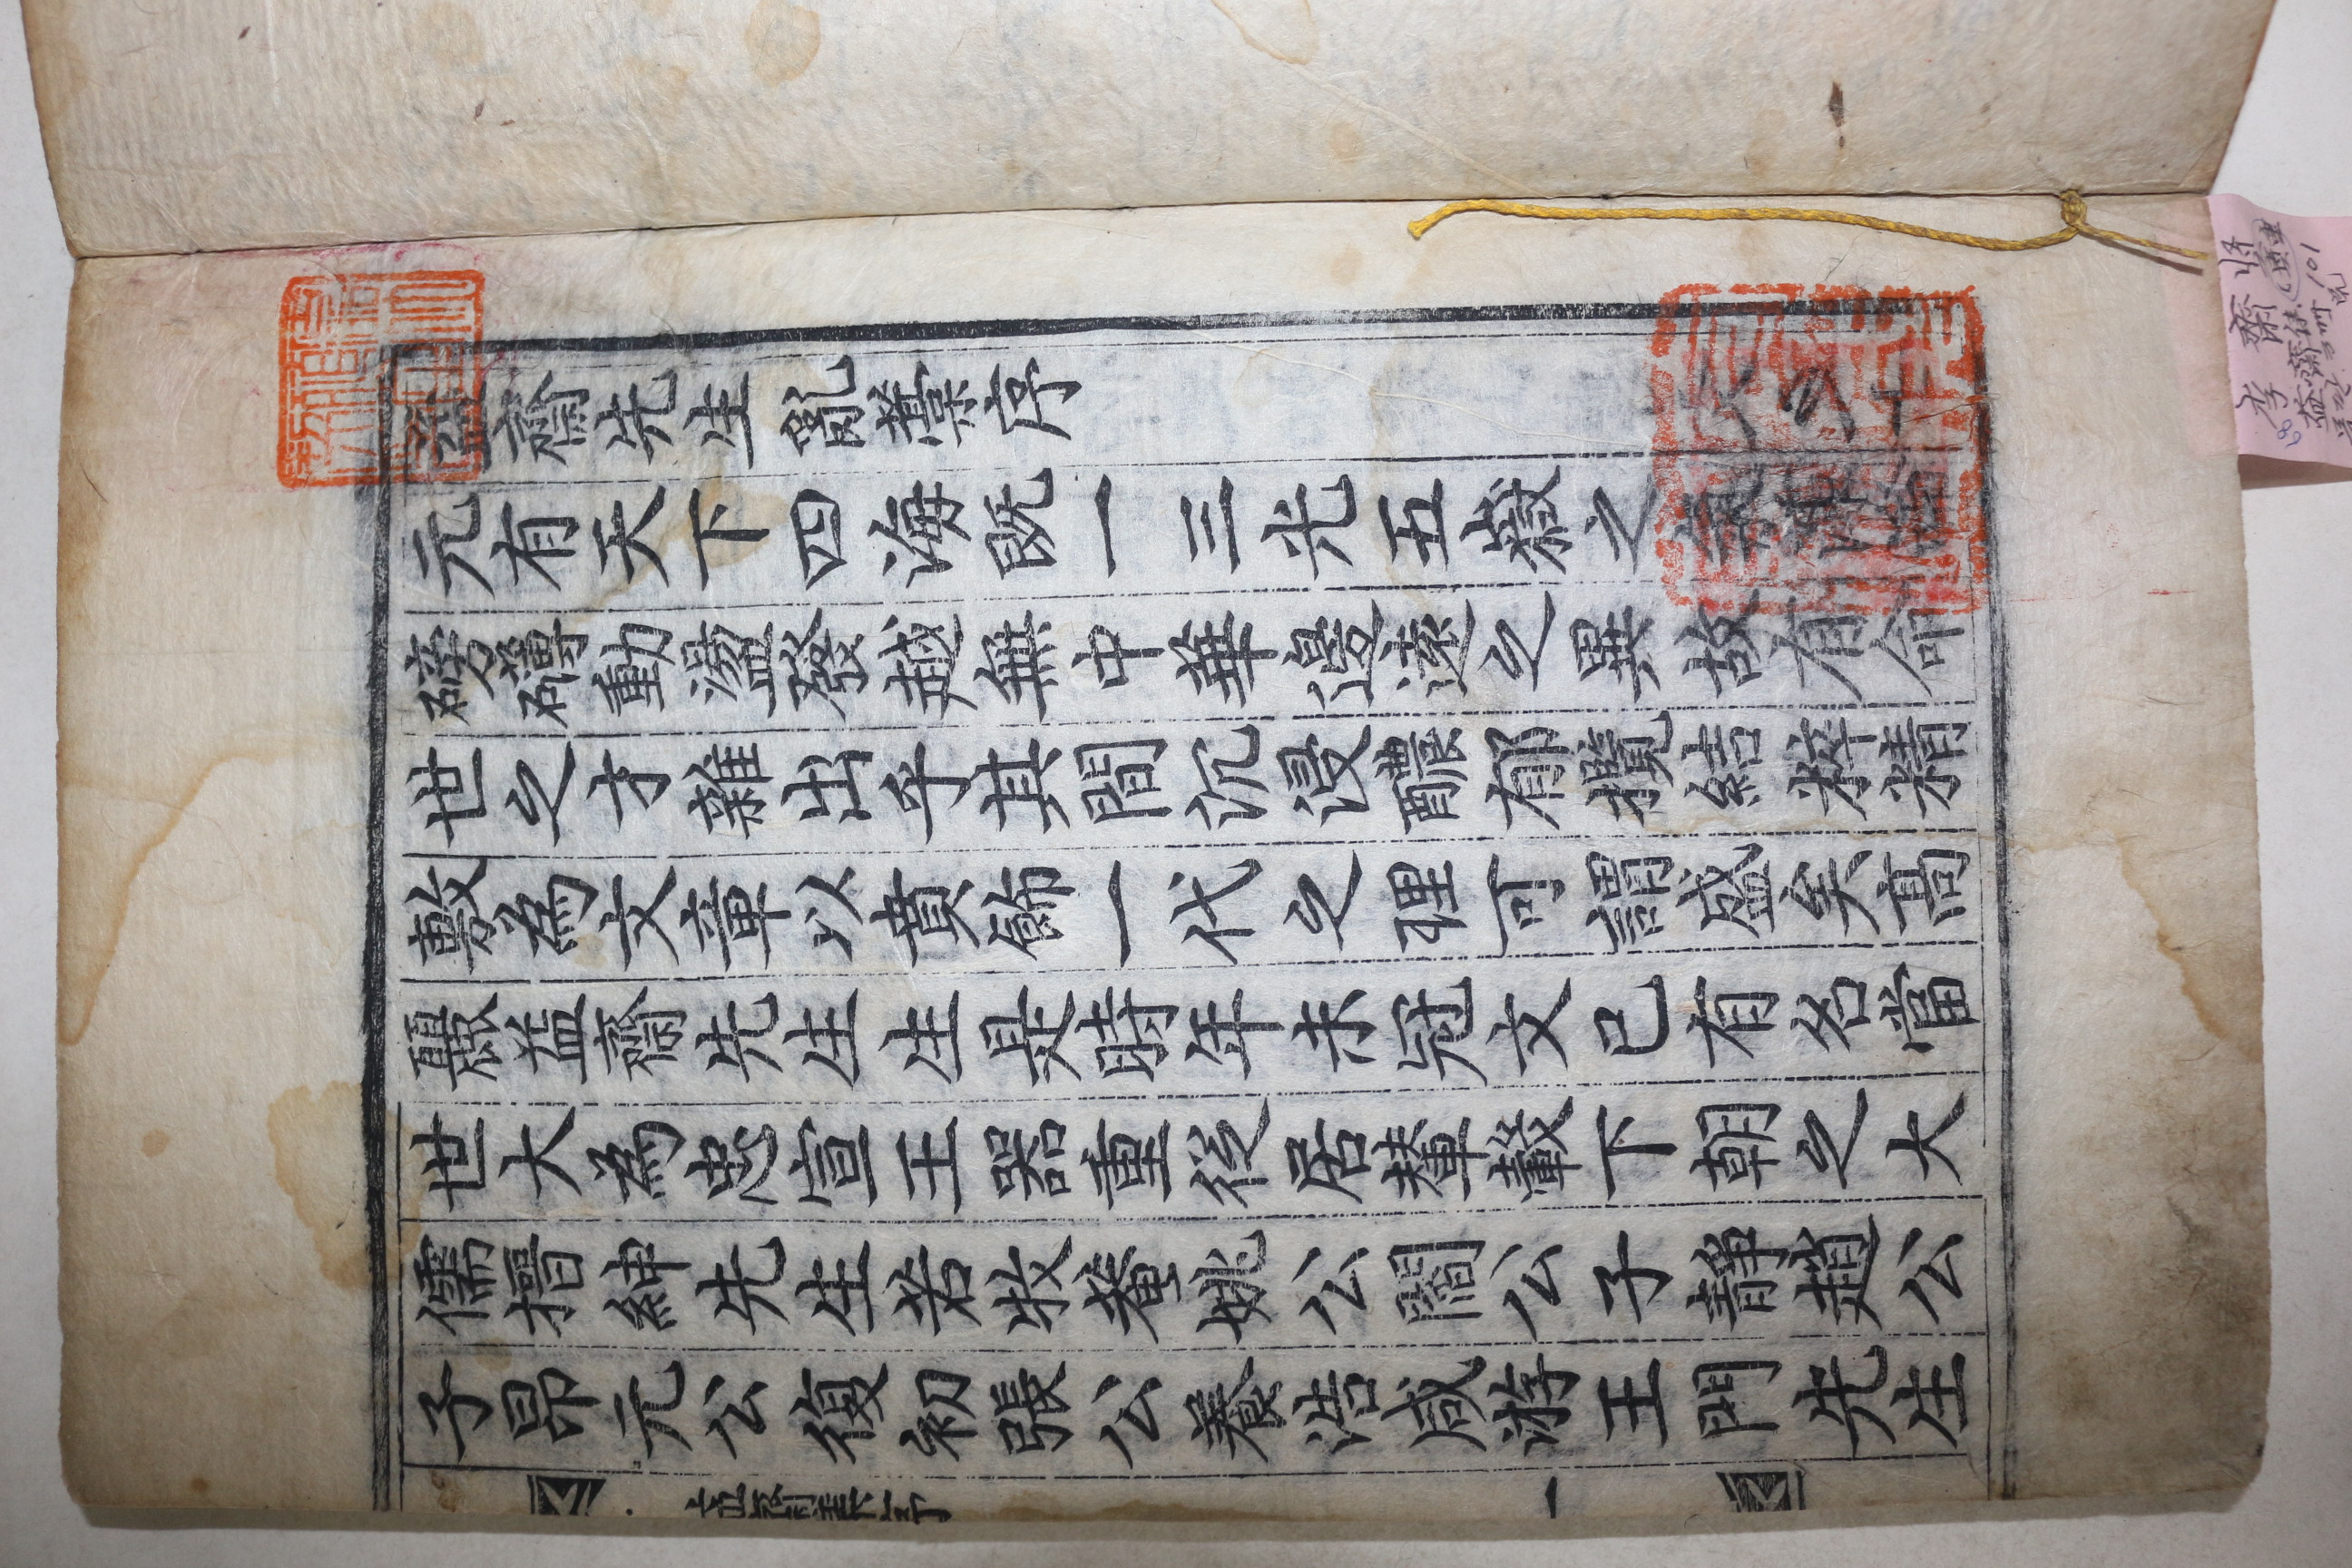 益齋先生亂藁序
元有天下四海旣一三光五嶽之氣
磅礴動盪發越無中華邊遠之異故有命
世之才雜出乎其間沉浸醲郁攬結粹精
敷爲文章以賁飾一代之理可謂盛矣高
麗益齋先生生是時年未冠文已有名當
世大爲忠宣王器重從居輦轂下朝之大
儒搢紳先生若牧菴姚公閻公子靜趙公
子昻元公復初張公養浩咸游王門先生
益齋集序
一